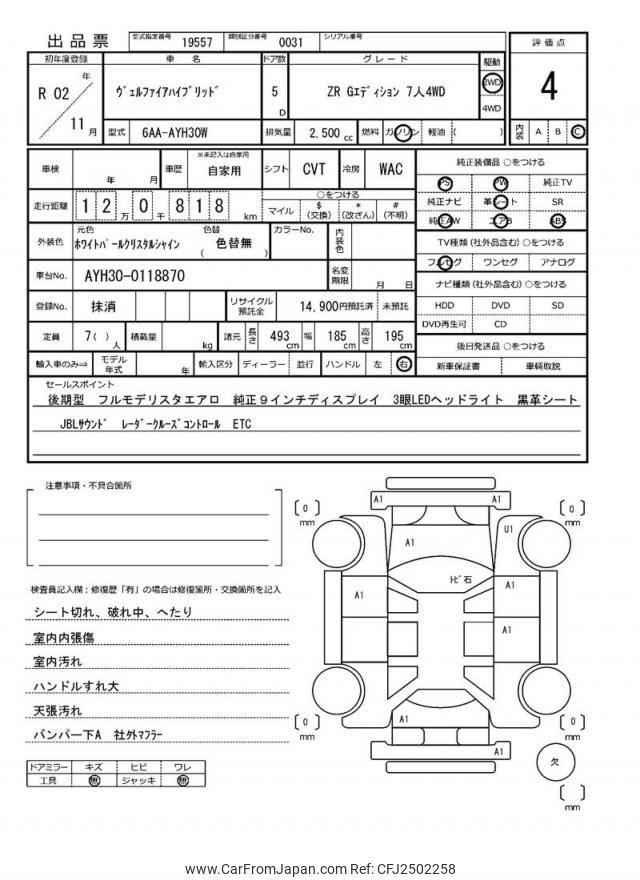 出品票
型式指定番号 19557 類別区分番号 0031 シリアル番号
初年度登録 車名 ドア数 グレード 駆動 評価点
R 02 年 11 月
ヴェルファイアハイブリッド 5 D ZR Gエディション 7人4WD 2WD 4WD 4
型式 6AA-AYH30W 排気量 2,500 cc 燃料 ガソリン 軽油 ( ) 内装 A B C
車検 年 月 車歴 ※未記入は自家用 自家用 シフト CVT 冷房 WAC
走行距離 1 2 万 0 千 8 1 8 km ○をつける マイル $ (交換) * (改ざん) # (不明)
外装色 元色 ホワイトパールクリスタルシャイン 色替 ( 色替無 ) カラーNo. 内装色
車台No. AYH30-0118870 名変期限 月 日
登録No. 抹消 リサイクル預託金 14,900円預託済 未預託
定員 7( )人 積載量 kg 諸元 長さ 493cm 幅 185cm 高さ 195cm
輸入車のみ⇒ モデル年式 年 輸入区分 ディーラー 並行 ハンドル 左 右
純正装備品 ○をつける
PS PW 純正TV
純正ナビ 革シート SR
純正AW エアB ABS
TV種類(社外品含む)○をつける
フルセグ ワンセグ アナログ
ナビ種類(社外品含む)○をつける
HDD DVD SD
DVD再生可 CD
後日発送品 ○をつける
新車保証書 車輌取説
セールスポイント
後期型 フルモデリスタエアロ 純正9インチディスプレイ 3眼LEDヘッドライト 黒革シート
JBLサウンド レーダークルーズコントロール ETC
注意事項・不具合箇所
検査員記入欄:修復歴「有」の場合は修復箇所・交換箇所を記入
シート切れ、破れ中、へたり
室内内張傷
室内汚れ
ハンドルすれ大
天張汚れ
バンパー下A 社外マフラー
ドアミラー キズ ヒビ ワレ
工具 無 ジャッキ 無
A1 A1
[ 0 ] mm [ 0 ] mm
A1 U1
トビ石
A1 A1
A1
A1
[ 0 ] mm [ 0 ] mm
A1
欠
[ ] mm
www.CarFromJapan.com Ref: CFJ2502258